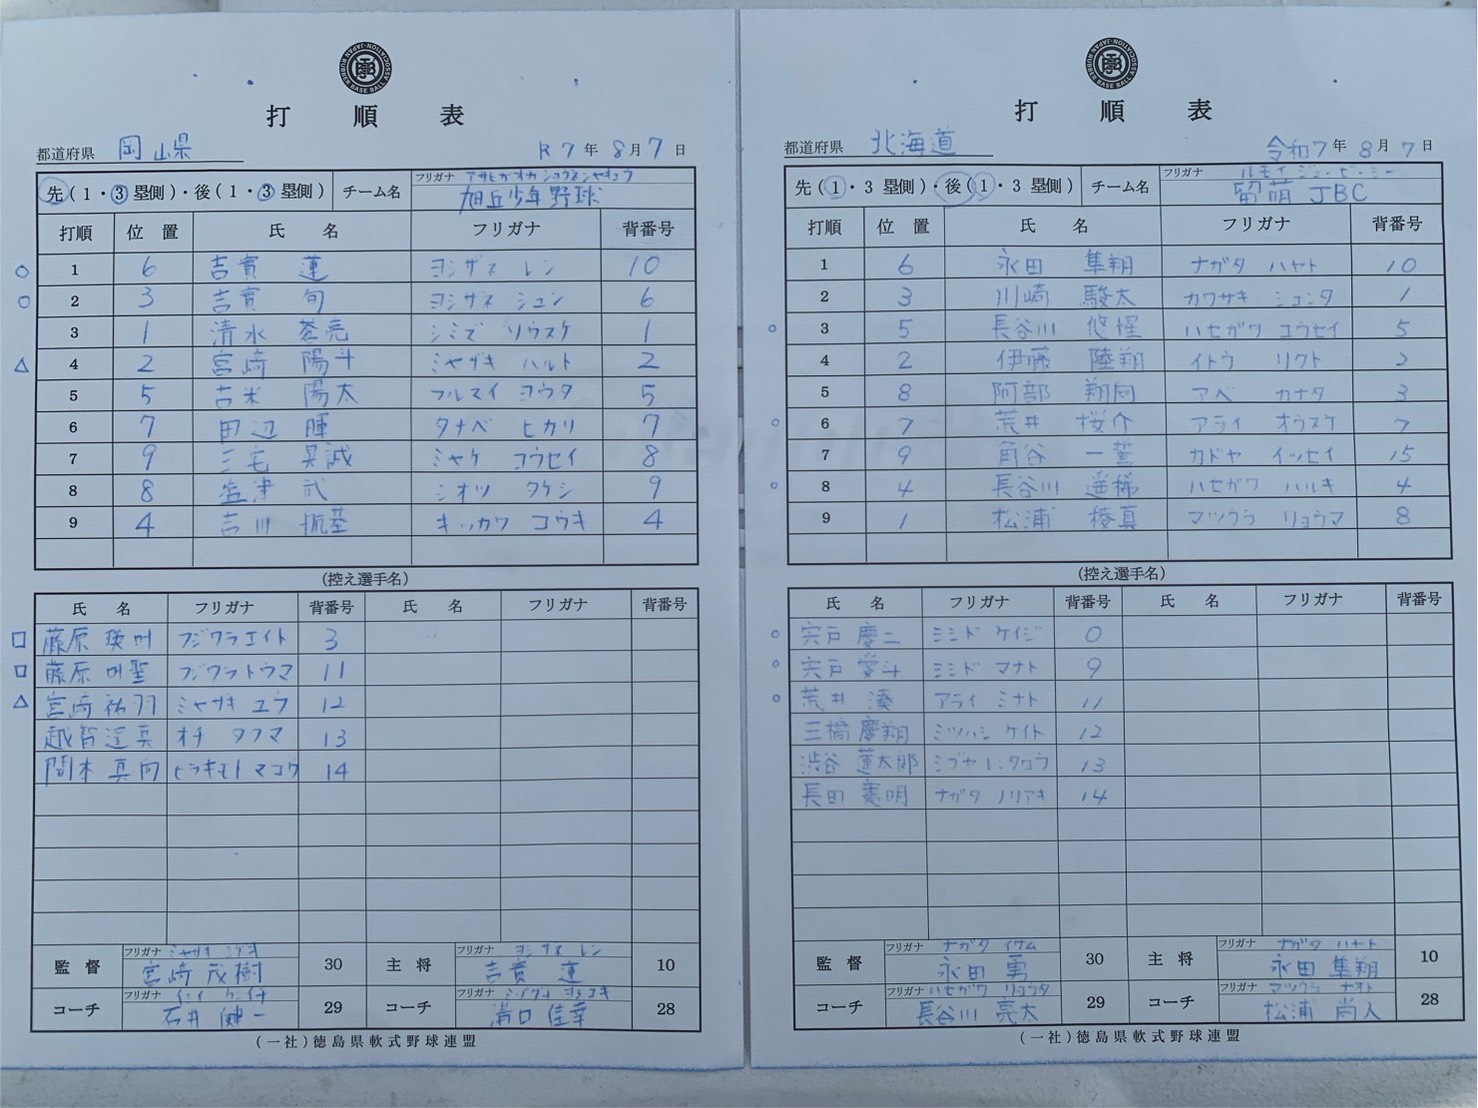 打順表
都道府県 岡山県 R7年8月7日
先(1・3塁側)・後(1・3塁側) チーム名 フリガナ アサヒガオカ ショウネンヤキュウ
旭丘少年野球
打順 位置 氏名 フリガナ 背番号
○ 1 6 吉實 蓮 ヨシザネ レン 10
○ 2 3 吉實 旬 ヨシザネ シュン 6
3 1 清水 蒼亮 シミズ ソウスケ 1
△ 4 2 宮﨑 陽斗 ミヤザキ ハルト 2
5 5 古米 陽太 フルマイ ヨウタ 5
6 7 田辺 暉 タナベ ヒカリ 7
7 9 三宅 晃誠 ミヤケ コウセイ 8
8 8 塩津 武 シオツ タケシ 9
9 4 吉川 航基 キッカワ コウキ 4
(控え選手名)
氏名 フリガナ 背番号 氏名 フリガナ 背番号
□ 藤原 瑛叶 フジワラエイト 3
□ 藤原 叶聖 フジワラトウマ 11
△ 宮﨑 祐羽 ミヤザキ ユウ 12
越智 逞真 オチ タクマ 13
開本 真向 ヒラキモト マコウ 14
監督 フリガナ ミヤザキ シゲキ 30 主将 フリガナ ヨシザネ レン 10
宮﨑 茂樹 吉實 蓮
コーチ フリガナ イシイ ケンイチ 29 コーチ フリガナ 28
石井 健一 溝口 佳幸
(一社)徳島県軟式野球連盟
打順表
都道府県 北海道 令和7年8月7日
先(1・3塁側)・後(1・3塁側) チーム名 フリガナ ルモイ ジェ・ビ・シー
留萌 JBC
打順 位置 氏名 フリガナ 背番号
1 6 永田 隼翔 ナガタ ハヤト 10
2 3 川崎 駿太 カワサキ シュンタ 1
○ 3 5 長谷川 悠惺 ハセガワ ユウセイ 5
4 2 伊藤 陸翔 イトウ リクト 2
5 8 阿部 翔向 アベ カナタ 3
○ 6 7 荒井 桜介 アライ オウスケ 7
7 9 角谷 一誓 カドヤ イッセイ 15
○ 8 4 長谷川 遥稀 ハセガワ ハルキ 4
9 1 松浦 稜真 マツウラ リョウマ 8
(控え選手名)
氏名 フリガナ 背番号 氏名 フリガナ 背番号
○ 宍戸 慶二 シシド ケイジ 0
○ 宍戸 愛斗 シシド マナト 9
○ 荒井 湊 アライ ミナト 11
三橋 慶翔 ミツハシ ケイト 12
渋谷 蓮太郎 シブヤ レンタロウ 13
長田 憲明 ナガタ ノリアキ 14
監督 フリガナ ナガタ イサム 30 主将 フリガナ ナガタ ハヤト 10
永田 勇 永田 隼翔
コーチ フリガナ ハセガワ リョウタ 29 コーチ フリガナ マツウラ ナオト 28
長谷川 亮太 松浦 尚人
(一社)徳島県軟式野球連盟